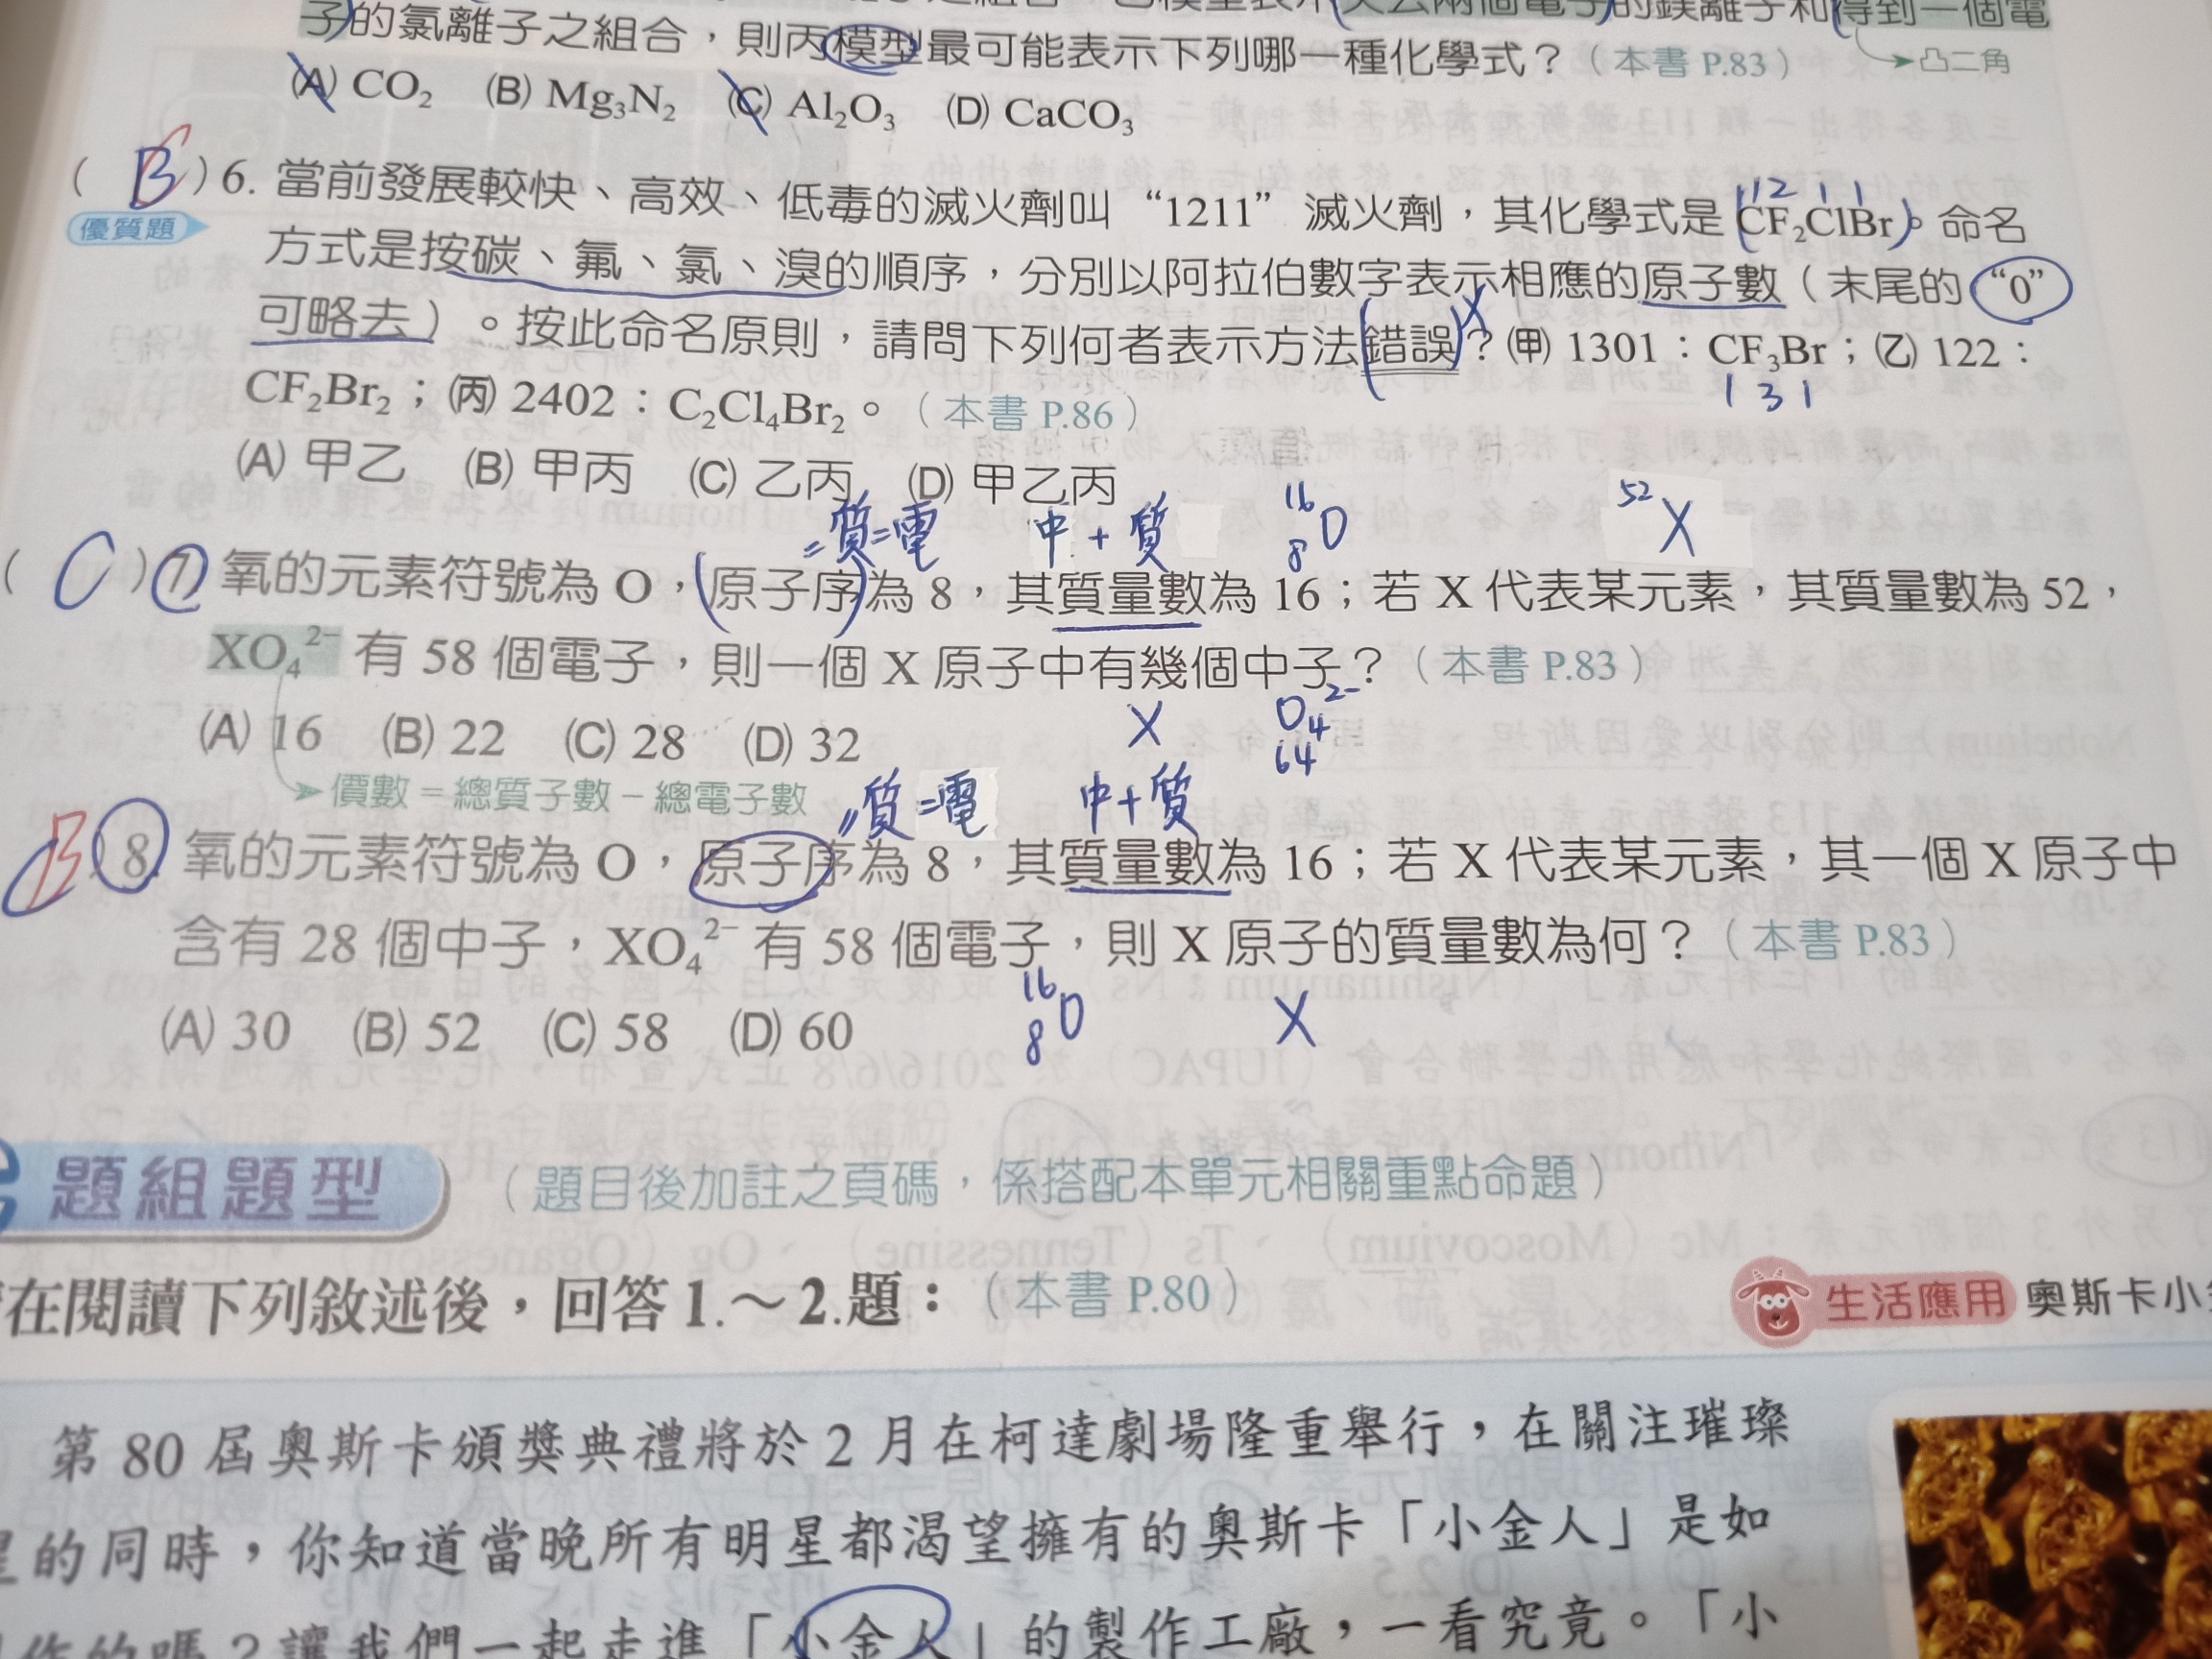 子的氯離子之組合，則丙模型最可能表示下列哪一種化學式？（本書 P.83）
凸二角
(A) CO₂ (B) Mg₃N₂ (C) Al₂O₃ (D) CaCO₃
( B ) 6. 當前發展較快、高效、低毒的滅火劑叫 “1211” 滅火劑，其化學式是 CF₂ClBr。命名
1 2 1 1
優質題
方式是按碳、氟、氯、溴的順序，分別以阿拉伯數字表示相應的原子數（末尾的 “0”
可略去）。按此命名原則，請問下列何者表示方法錯誤？(甲) 1301：CF₃Br；(乙) 122：
X
1 3 1
CF₂Br₂；(丙) 2402：C₂Cl₄Br₂。（本書 P.86）
(A) 甲乙 (B) 甲丙 (C) 乙丙 (D) 甲乙丙
=質=電 中+質 ¹⁶₈O ⁵²X
( C ) 7. 氧的元素符號為 O，原子序為 8，其質量數為 16；若 X 代表某元素，其質量數為 52，
XO₄²⁻ 有 58 個電子，則一個 X 原子中有幾個中子？（本書 P.83）
X O₄²⁻
64
(A) 16 (B) 22 (C) 28 (D) 32
價數＝總質子數－總電子數
=質=電 中+質
B 8. 氧的元素符號為 O，原子序為 8，其質量數為 16；若 X 代表某元素，其一個 X 原子中
含有 28 個中子，XO₄²⁻ 有 58 個電子，則 X 原子的質量數為何？（本書 P.83）
¹⁶₈O X
(A) 30 (B) 52 (C) 58 (D) 60
題組題型 （題目後加註之頁碼，係搭配本單元相關重點命題）
在閱讀下列敘述後，回答 1.～2.題：（本書 P.80）
生活應用 奧斯卡小
第 80 屆奧斯卡頒獎典禮將於 2 月在柯達劇場隆重舉行，在關注璀璨
星的同時，你知道當晚所有明星都渴望擁有的奧斯卡「小金人」是如
作的嗎？讓我們一起走進「小金人」的製作工廠，一看究竟。「小